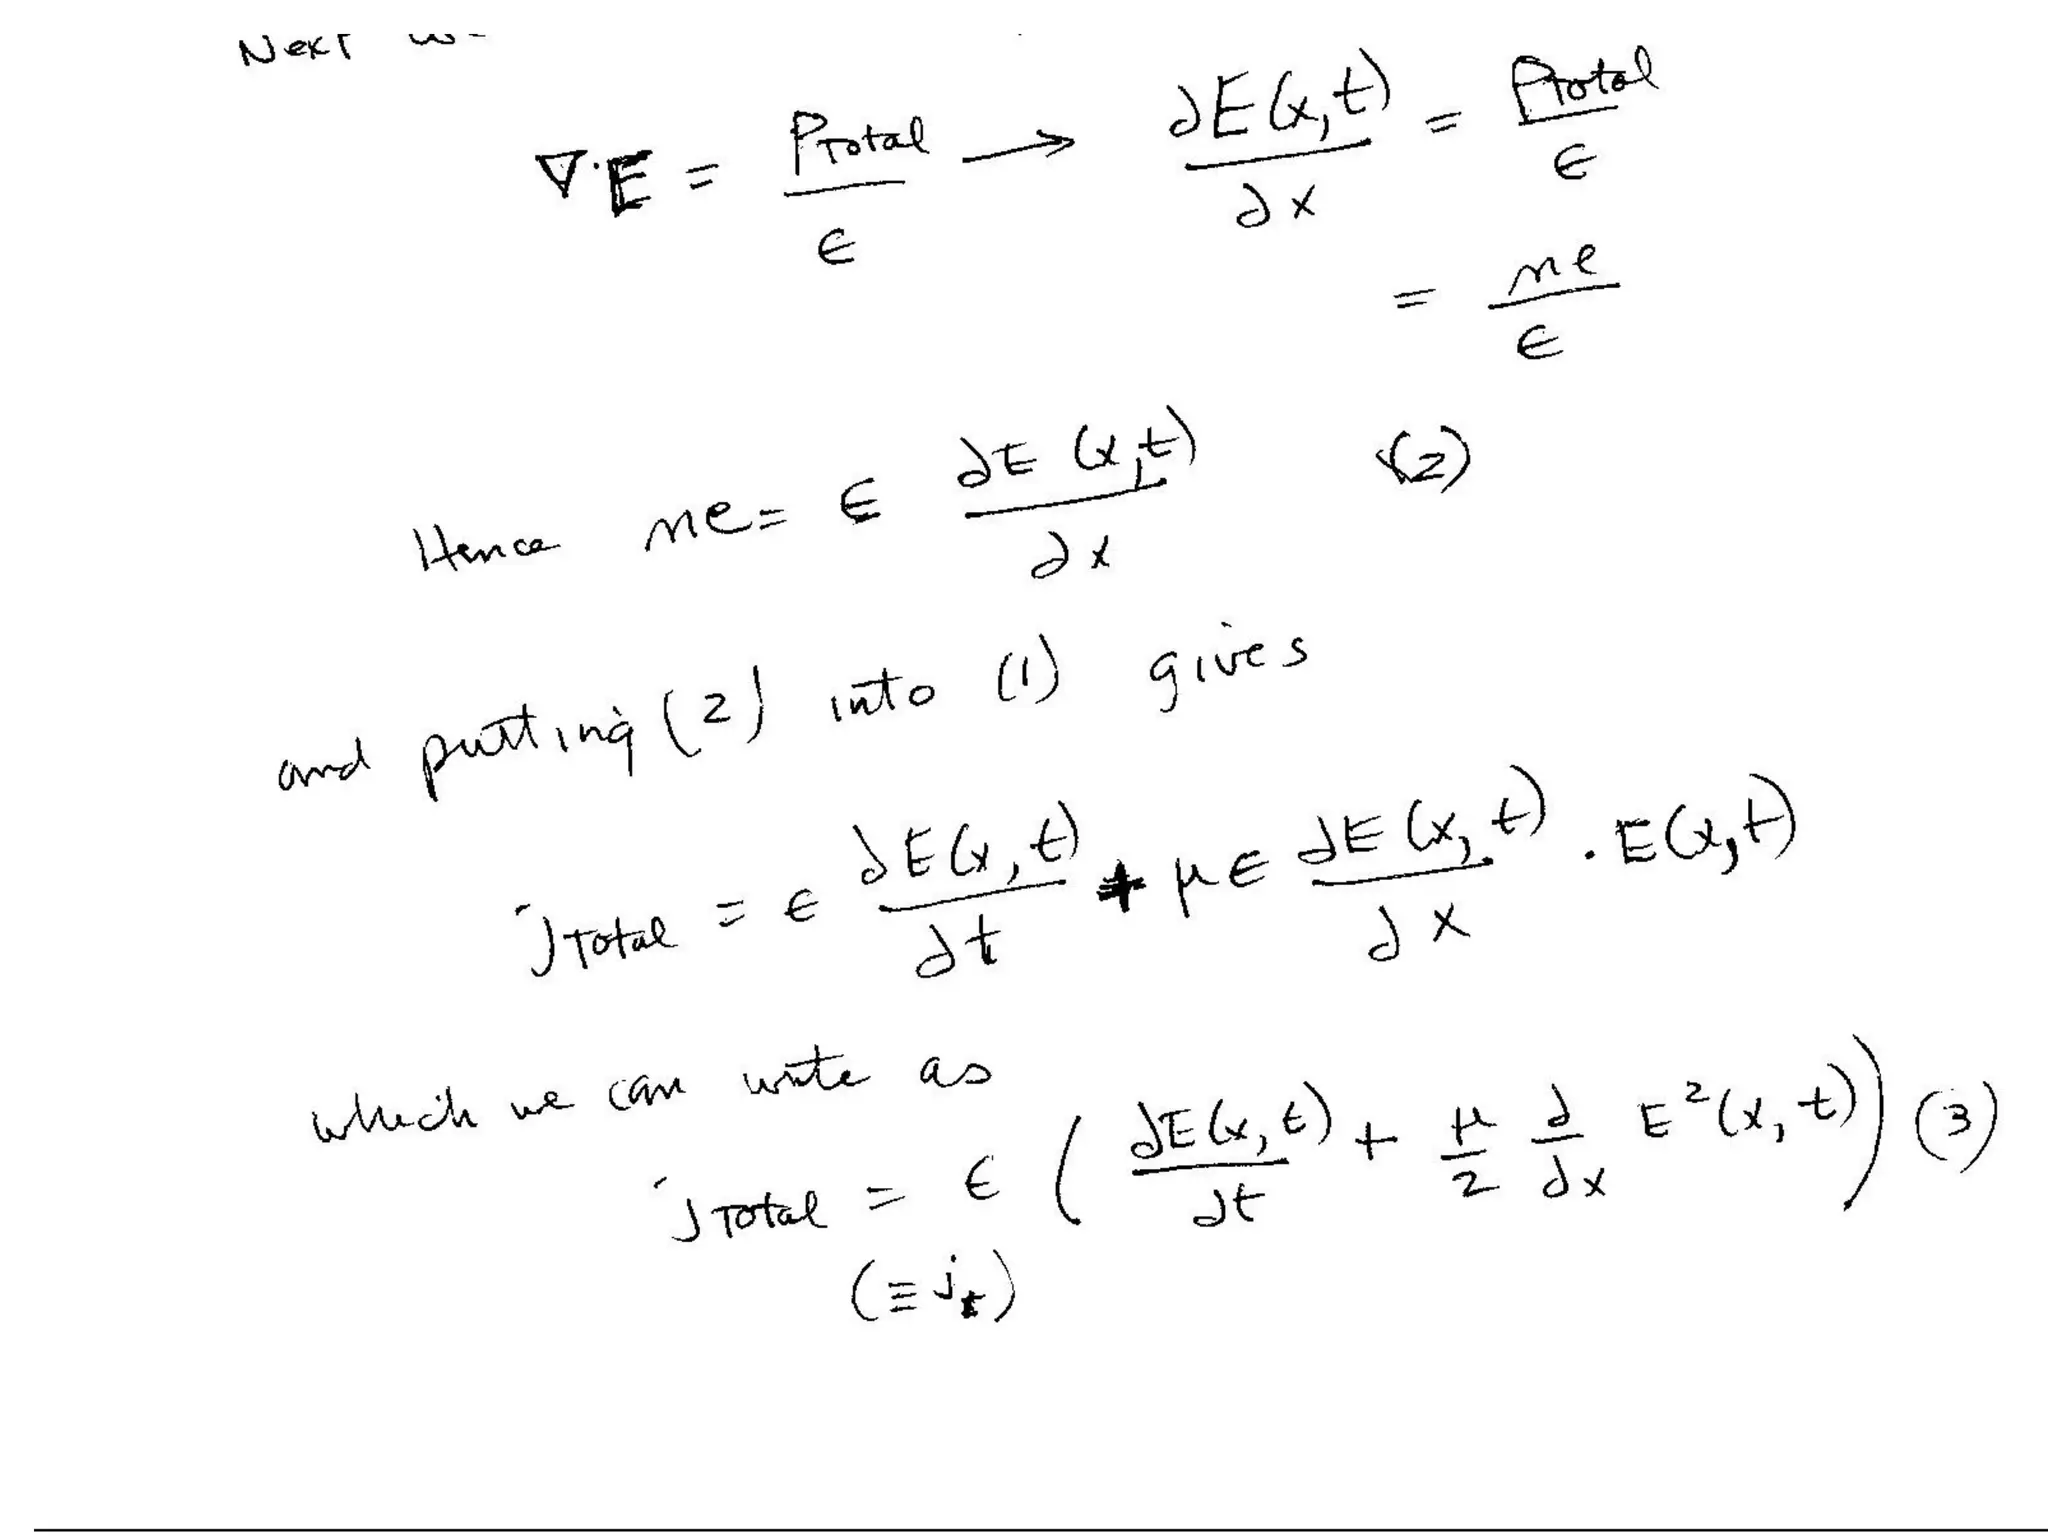 Next
∇·E = ρTotal/ϵ → ∂E(x,t)/∂x = ρTotal/ϵ
= ne/ϵ
Hence ne = ϵ ∂E(x,t)/∂x (2)
and putting (2) into (1) gives
jTotal = ϵ ∂E(x,t)/∂t + μϵ ∂E(x,t)/∂x · E(x,t)
which we can write as
jTotal = ϵ ( ∂E(x,t)/∂t + μ/2 ∂/∂x E²(x,t) ) (3)
(≡ jt)